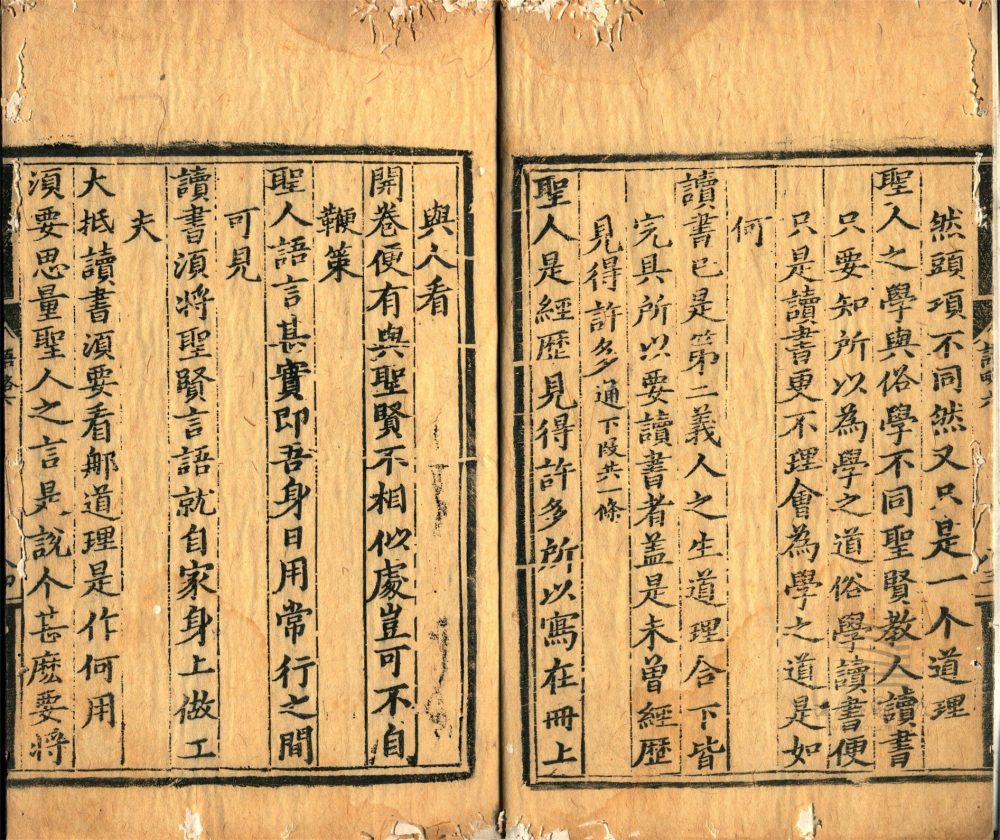 然頭項不同然又只是一个道理
聖人之學與俗學不同聖賢教人讀書
只要知所以為學之道俗學讀書便
只是讀書更不理會為學之道是如
何
讀書已是第二義人之生道理合下皆
完具所以要讀書者盖是未曾經歷
見得許多通下段共一條
聖人是經歷見得許多所以寫在冊上
與人看
開卷便有與聖賢不相似處豈可不自
鞭策
聖人語言甚實即吾身日用常行之間
可見
讀書湏將聖賢言語就自家身上做工
夫
大抵讀書湏要看那道理是作何用
湏要思量聖人之言是說个甚麽要將